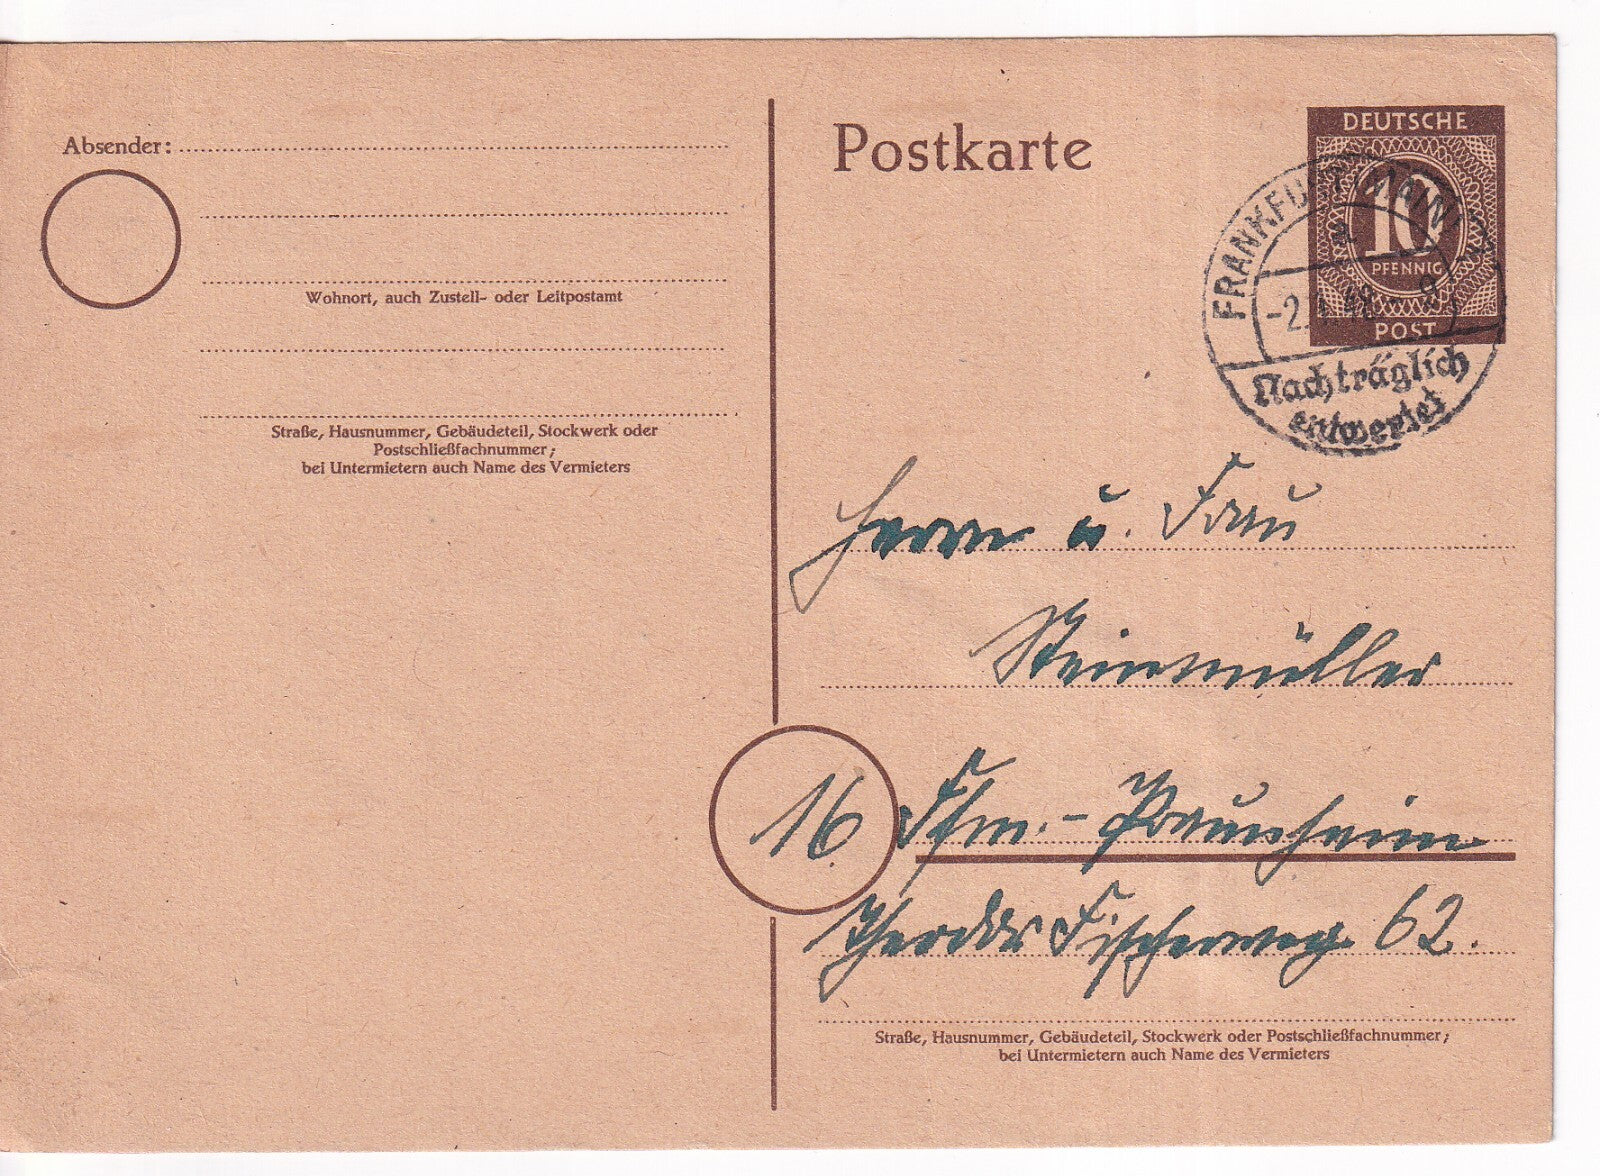 Absender:
Wohnort, auch Zustell- oder Leitpostamt
Straße, Hausnummer, Gebäudeteil, Stockwerk oder
Postschließfachnummer;
bei Untermietern auch Name des Vermieters
Postkarte
DEUTSCHE
10
PFENNIG
POST
FRANKFURT (MAIN)
-2.1.48-9
Nachträglich
entwertet
Herrn u. Frau
Steinmüller
16 Ffm.-Praunheim
Theodor Fischerweg 62.
Straße, Hausnummer, Gebäudeteil, Stockwerk oder Postschließfachnummer;
bei Untermietern auch Name des Vermieters